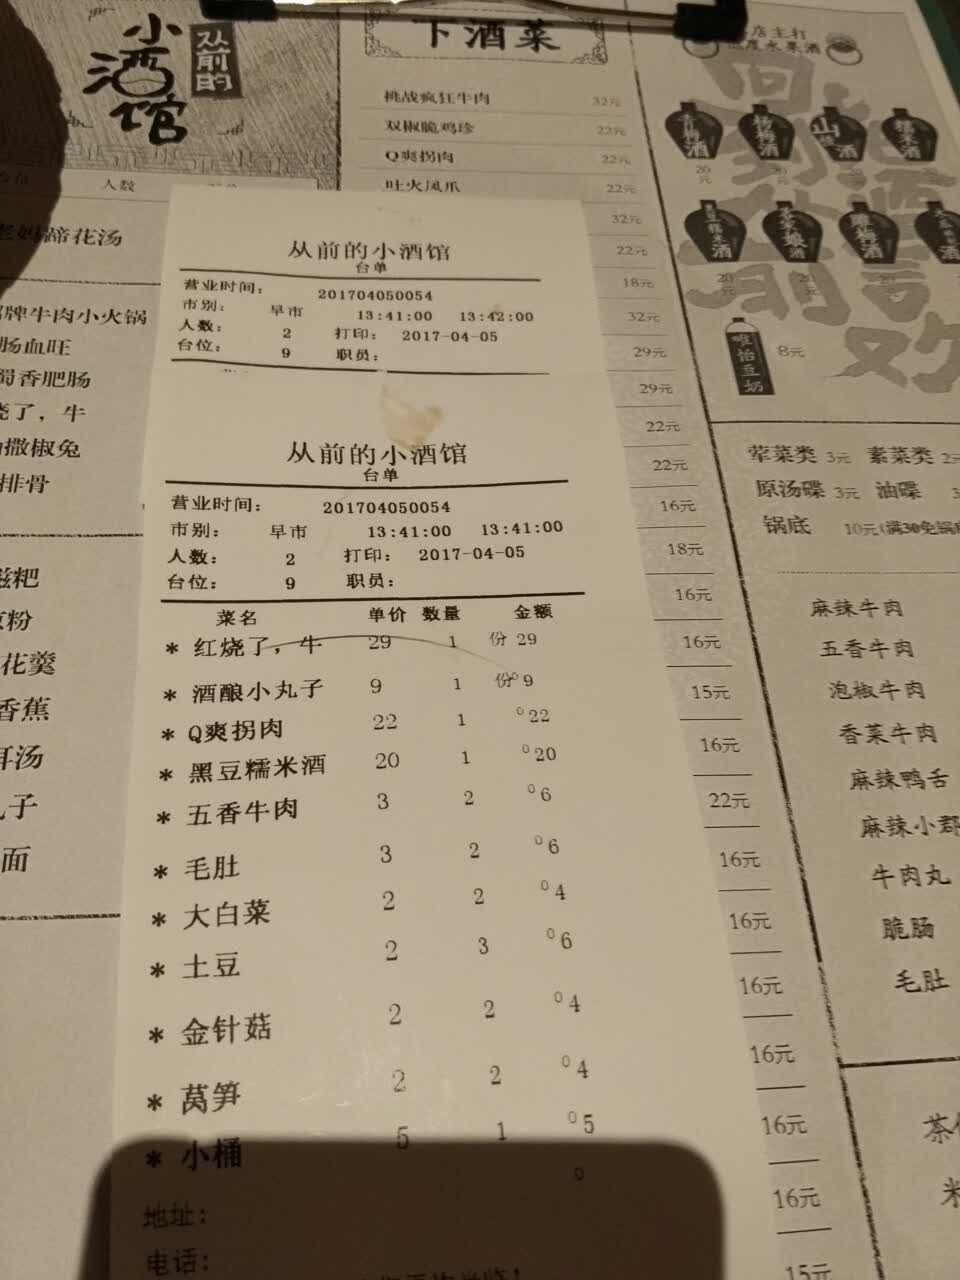 从前的
小酒馆
人数
蹄花汤
牌牛肉小火锅
肠血旺
蜀香肥肠
烧了，牛
撒椒兔
排骨
糍粑
粉
花羹
香蕉
耳汤
丸子
面
下酒菜
挑战疯狂牛肉 32元
双椒脆鸡珍 22元
Q爽拐肉 22元
吐火凤爪 22元
32元
22元
18元
32元
29元
29元
22元
22元
16元
18元
16元
16元
15元
16元
22元
16元
16元
16元
16元
16元
16元
15元
从前的小酒馆
台单
营业时间： 201704050054
市别： 早市 13:41:00 13:42:00
人数： 2 打印： 2017-04-05
台位： 9 职员：
从前的小酒馆
台单
营业时间： 201704050054
市别： 早市 13:41:00 13:41:00
人数： 2 打印： 2017-04-05
台位： 9 职员：
菜名 单价 数量 金额
* 红烧了，牛 29 1 份 29
* 酒酿小丸子 9 1 份 9
* Q爽拐肉 22 1 0 22
* 黑豆糯米酒 20 1 0 20
* 五香牛肉 3 2 0 6
* 毛肚 3 2 0 6
* 大白菜 2 2 0 4
* 土豆 2 3 0 6
* 金针菇 2 2 0 4
* 莴笋 2 2 0 4
* 小桶 5 1 0 5
0
地址：
电话：
店主打
度水果酒
青梅酒
杨梅酒
酒
糯米酒
20元
20
20
20
酒
酒
酒
20元
20元
20
唯怡豆奶 8元
荤菜类 3元 素菜类 2元
原汤碟 3元 油碟
锅底 10元(满30免锅底
麻辣牛肉
五香牛肉
泡椒牛肉
香菜牛肉
麻辣鸭舌
麻辣小郡
牛肉丸
脆肠
毛肚
茶